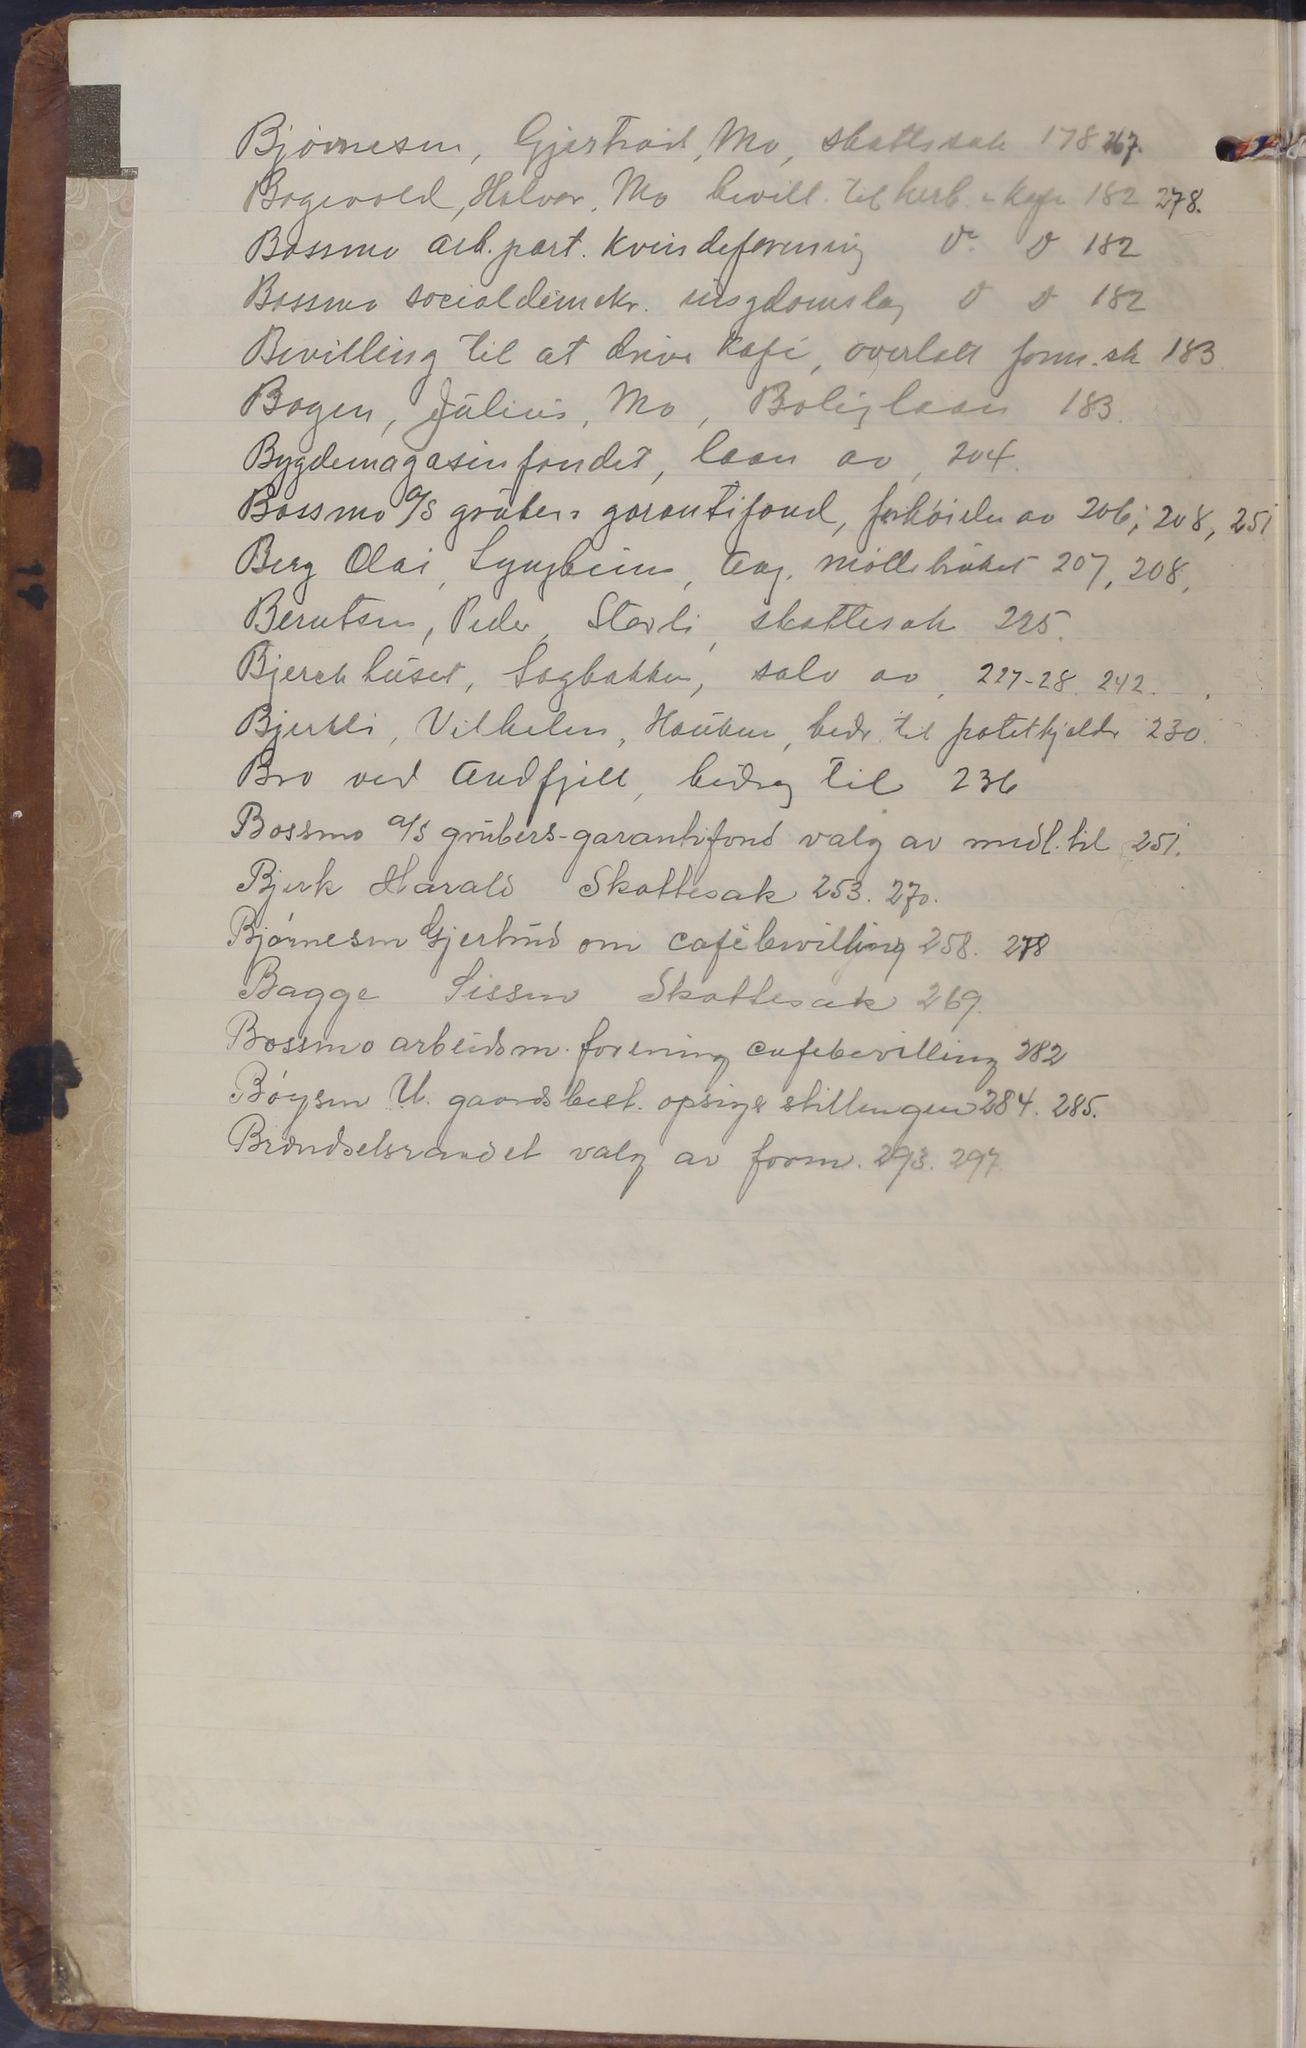 Bjørnesen, Gjertrud, Mo, skattesak 178 267.
Bogevold, Halvor, Mo bevill. til herb. - kafe 182 278.
Bossmo arb. part. kvindeforening do do 182
Bossmo socialdemokr. ungdomslag do do 182
Bevilling til at drive kafé, overlatt form.sk 183.
Bogen, Julius, Mo, Boliglaan 183.
Bygdemagasinfondet, laan av, 204.
Bossmo a/s grubers garantifond, forhøielse av 206, 208, 251
Berg Olai, Lyngheim, ang. møllebruket 207, 208,
Berntsen, Peder, Storli, skattesak 225.
Bjerckhuset, Sagbakken, salv av, 227-28. 242.
Bjerkli, Vilhelm, Hauken, bidr. til potetkjelder 230.
Bro ved Andfjell, bidrag til 236
Bossmo a/s grubers-garantifond valg av medl. til 251.
Bjerk Harald Skattesak 253. 270.
Bjørnesen Gjertrud om cafébevilling 258. 278
Bagge Sissen Skattesak 269.
Bossmo arbeiderm. forening cafebevilling 282
Bøysen U. gaardsbest. opsiger stillingen 284. 285.
Brændselsraadet valg av form. 293. 297.